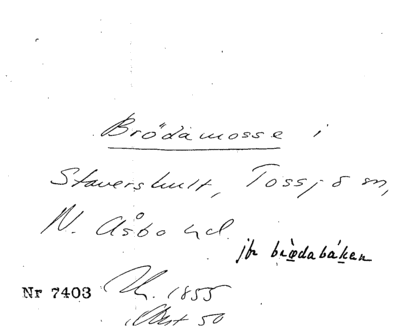 Brödamosse i
Stavershult, Tossjö sn,
N. Åsbo hd
jfr brödabáken
Nr 7403
1855
50